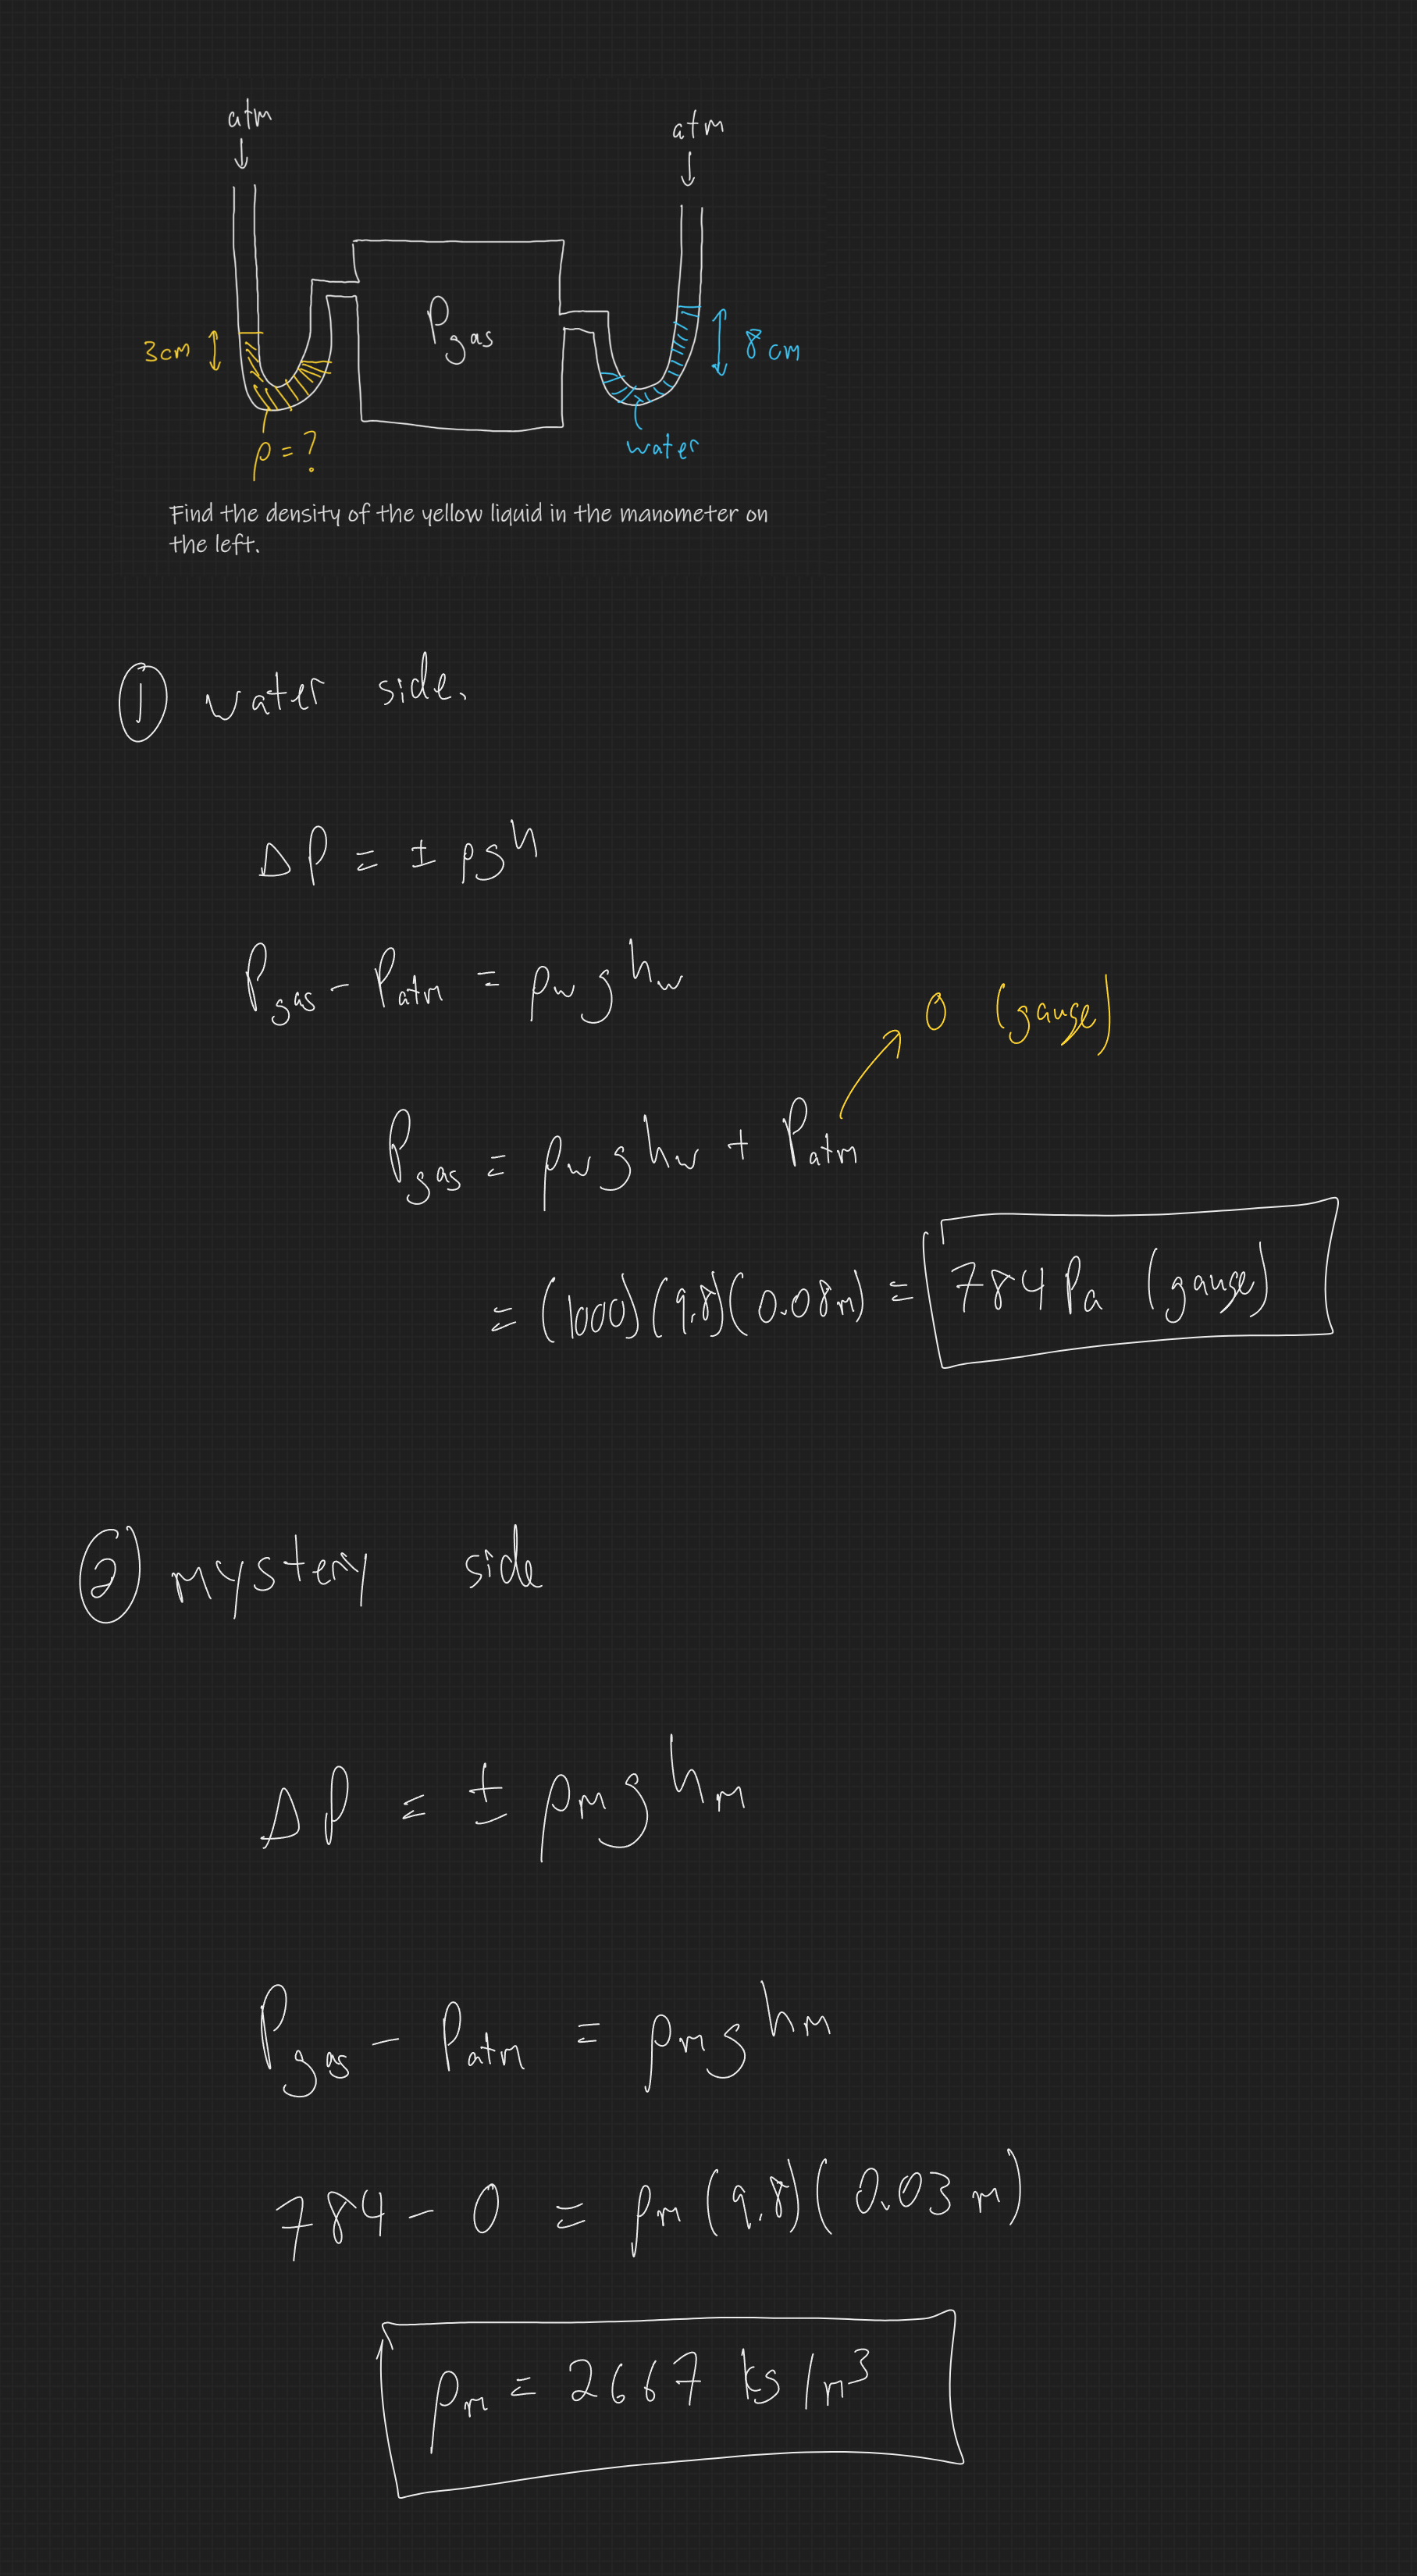 atm
↓
atm
↓
3cm
P gas
8 cm
ρ = ?
water
Find the density of the yellow liquid in the manometer on
the left.
① water side.
ΔP = ± ρgh
P_gas - P_atm = ρ_w g h_w
0 (gauge)
P_gas = ρ_w g h_w + P_atm
= (1000)(9.8)(0.08m) = 784 Pa (gauge)
② mystery side
ΔP = ± ρ_m g h_m
P_gas - P_atm = ρ_m g h_m
784 - 0 = ρ_m (9.8)(0.03 m)
ρ_m = 2667 kg/m³